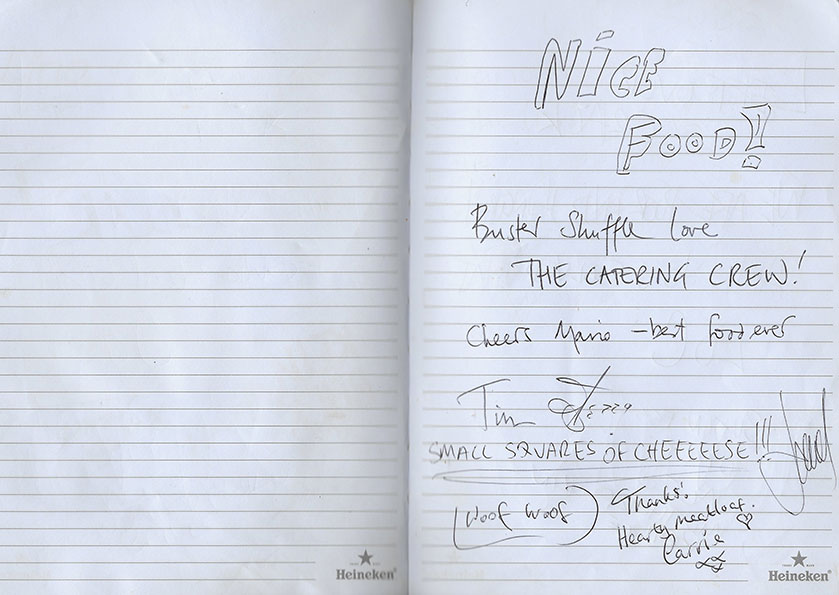 NiCE
FOOD!
Buster Shuffle love
THE CATERING CREW!
Cheers Mario – best food ever
Tim
SMALL SQUARES OF CHEEEEESE!!!
Woof Woof
Thanks!
Hearty meatloaf.
Carrie
xx
Heineken®
Heineken®